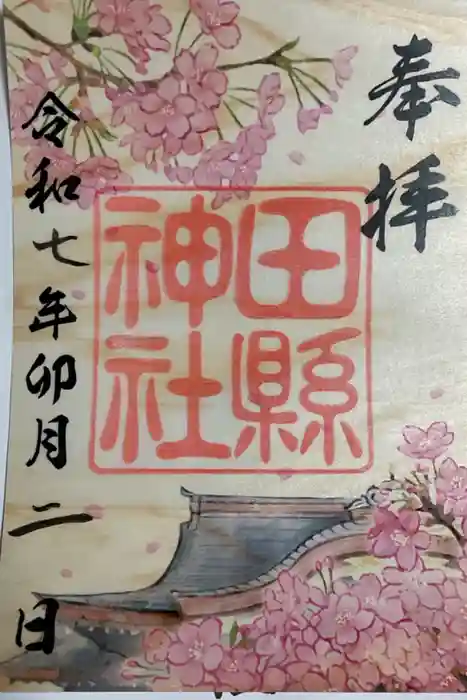 奉拝
田縣
神社
令和七年卯月二日